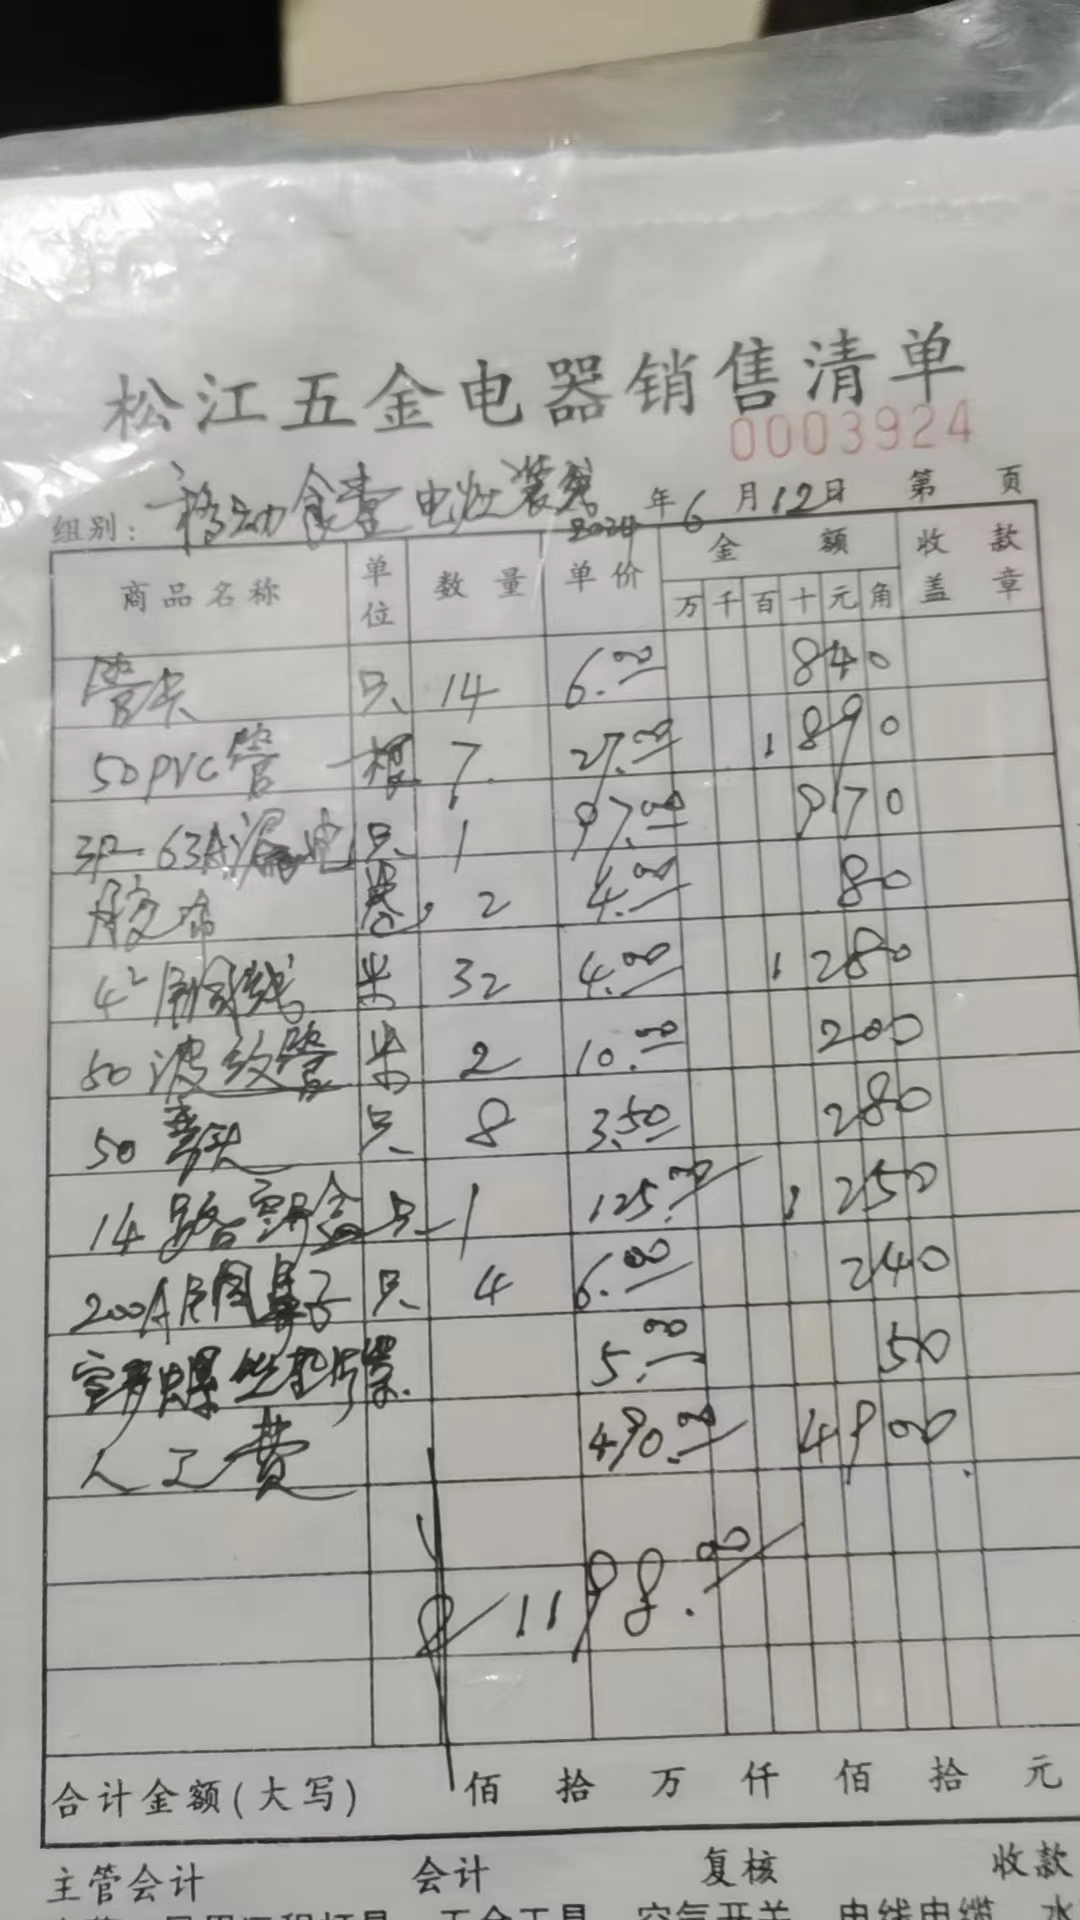 松江五金电器销售清单
0003924
组别：移动食堂电缆装线 2024年6月12日 第 页
商品名称 单位 数量 单价 金额 收款盖章
万 千 百 十 元 角
管夹 只 14 6.00 840
50PVC管 根 7 27.00 1890
3P-63A漏电 只 1 97.00 970
胶布 卷 2 4.00 80
4² 线 米 32 4.00 1280
50波纹管 米 2 10.00 200
50弯头 只 8 3.50 280
14路空开盒 只 1 125.00 1250
200A铜鼻子 只 4 6.00 240
螺丝 5.00 50
人工费 490.00 4900
1198.00
合计金额(大写) 佰 拾 万 仟 佰 拾 元
主管会计 会计 复核 收款
五金工具 空气开关 电线电缆 水